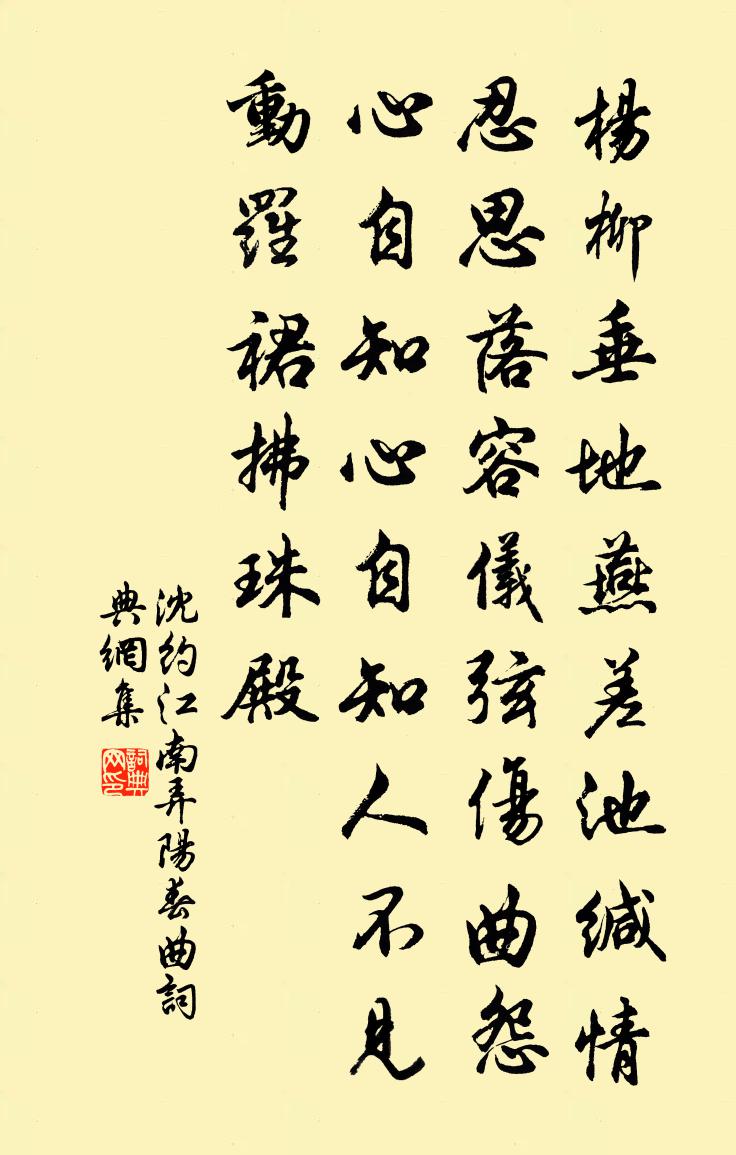 楊柳垂地燕差池緘情
忍思落容儀弦傷曲怨
心自知心自知人不見
動羅裙拂珠殿
沈約江南弄陽春曲詞
典網集
詞典網印